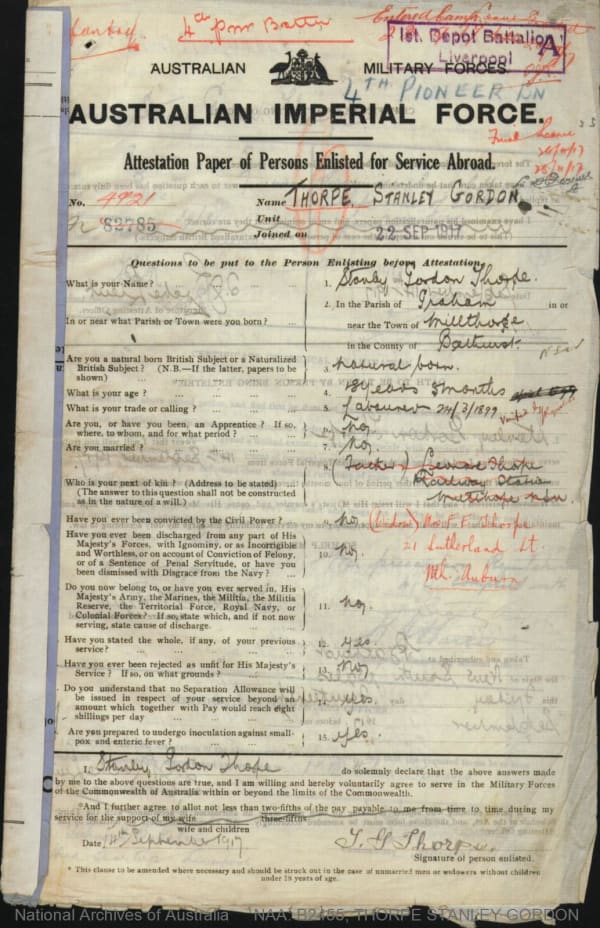 4th Pnr Battn
1st. Depot Battalion
Liverpool
A
AUSTRALIAN MILITARY FORCES
4TH PIONEER BN
AUSTRALIAN IMPERIAL FORCE.
Attestation Paper of Persons Enlisted for Service Abroad.
No. 4921
82785
Name THORPE, STANLEY GORDON
Unit
Joined on 22 SEP 1917
Questions to be put to the Person Enlisting before Attestation.
What is your Name? ... 1. Stanley Gordon Thorpe.
In or near what Parish or Town were you born? ... 2. In the Parish of Graham in or
near the Town of Millthorpe
in the County of Bathurst
Are you a natural born British Subject or a Naturalized
British Subject? (N.B.—If the latter, papers to be
shown) ... 3. natural born.
What is your age? ... 4. 18 years 5 months
What is your trade or calling? ... 5. Labourer 24/3/1899
Are you, or have you been, an Apprentice? If so,
where, to whom, and for what period? ... 6. No.
Are you married? ... 7. No.
Who is your next of kin? (Address to be stated) ...
(The answer to this question shall not be constructed
as in the nature of a will.) 8. (Father) George Thorpe
Railway Station
Millthorpe NSW
Have you ever been convicted by the Civil Power? ... 9. No.
(Widow) Mrs F. F. Thorpe
21 Sutherland St.
Mh. Auburn
Have you ever been discharged from any part of His
Majesty's Forces, with Ignominy, or as Incorrigible
and Worthless, or on account of Conviction of Felony,
or of a Sentence of Penal Servitude, or have you
been dismissed with Disgrace from the Navy? ... 10. No.
Do you now belong to, or have you ever served in, His
Majesty's Army, the Marines, the Militia, the Militia
Reserve, the Territorial Force, Royal Navy, or
Colonial Forces? If so, state which, and if not now
serving, state cause of discharge 11. No.
Have you stated the whole, if any, of your previous
service? ... 12. yes.
Have you ever been rejected as unfit for His Majesty's
Service? If so, on what grounds? ... 13. No
Do you understand that no Separation Allowance will
be issued in respect of your service beyond an
amount which together with Pay would reach eight
shillings per day ... 14. yes.
Are you prepared to undergo inoculation against small-
pox and enteric fever? ... 15. yes.
I, Stanley Gordon Thorpe do solemnly declare that the above answers made
by me to the above questions are true, and I am willing and hereby voluntarily agree to serve in the Military Forces
of the Commonwealth of Australia within or beyond the limits of the Commonwealth.
*And I further agree to allot not less than two-fifths of the pay payable to me from time to time during my
three-fifths
service for the support of my wife
wife and children
Date 14th September 1917
S. G. Thorpe.
Signature of person enlisted.
* This clause to be amended where necessary and should be struck out in the case of unmarried men or widowers without children
under 18 years of age.
National Archives of Australia NAA: B2455, THORPE STANLEY GORDON